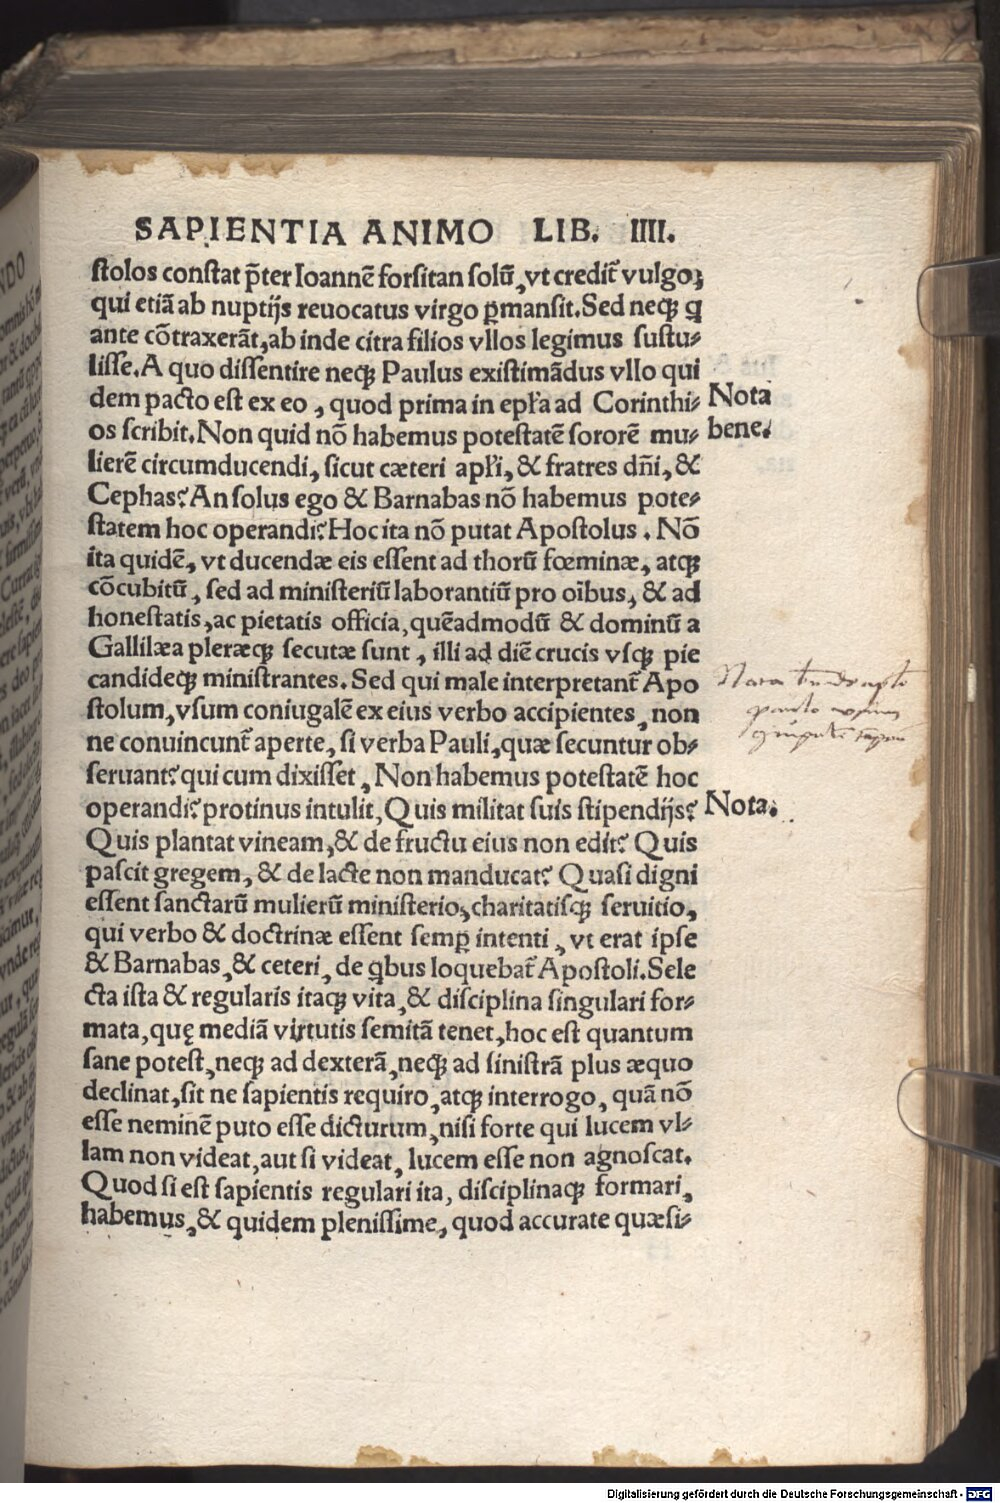 SAPIENTIA ANIMO LIB. IIII.
stolos constat p̃ter Ioannẽ forsitan solũ, vt credit᷑ vulgo,
qui etiã ab nuptijs reuocatus virgo ꝑmansit. Sed neqꝫ ꝗ
ante cõtraxerãt, ab inde citra filios vllos legimus sustu⸗
lisse. A quo dissentire neqꝫ Paulus existimãdus vllo qui
dem pacto est ex eo, quod prima in epl̃a ad Corinthi⸗
Nota
os scribit. Non quid nõ habemus potestatẽ sororẽ mu⸗
bene.
lierẽ circumducendi, sicut cæteri apl̃i, & fratres dñi, &
Cephas? An solus ego & Barnabas nõ habemus pote⸗
statem hoc operandi? Hoc ita nõ putat Apostolus. Nõ
ita quidẽ, vt ducendæ eis essent ad thorũ fœminæ, atqꝫ
cõcubitũ, sed ad ministeriũ laborantiũ pro oĩbus, & ad
honestatis, ac pietatis officia, quẽadmodũ & dominũ a
Gallilæa pleræqꝫ secutæ sunt, illi ad diẽ crucis vsqꝫ pie
candideqꝫ ministrantes. Sed qui male interpretant᷑ Apo
stolum, vsum coniugalẽ ex eius verbo accipientes, non
ne conuincunt᷑ aperte, si verba Pauli, quæ secuntur ob⸗
seruant? qui cum dixisset, Non habemus potestatẽ hoc
operandi? protinus intulit, Quis militat suis stipendijs?
Nota.
Quis plantat vineam, & de fructu eius non edit? Quis
pascit gregem, & de lacte non manducat? Quasi digni
essent sanctarũ mulierũ ministerio, charitatisqꝫ seruitio,
qui verbo & doctrinæ essent semꝑ intenti, vt erat ipse
& Barnabas, & ceteri, de ꝗbus loquebat᷑ Apostoli. Sele
cta ista & regularis itaqꝫ vita, & disciplina singulari for⸗
mata, quę mediã virtutis semitã tenet, hoc est quantum
sane potest, neqꝫ ad dexterã, neqꝫ ad sinistrã plus æquo
declinat, sit ne sapientis requiro, atqꝫ interrogo, quã nõ
esse neminẽ puto esse dicturum, nisi forte qui lucem vl⸗
lam non videat, aut si videat, lucem esse non agnoscat.
Quod si est sapientis regulari ita, disciplinaqꝫ formari,
habemus, & quidem plenissime, quod accurate quæsi⸗
Digitalisierung gefördert durch die Deutsche Forschungsgemeinschaft - DFG